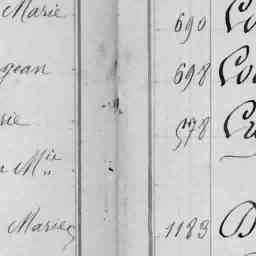 Marie
690
gean
698
rie
578
Mlle
Marie
1183